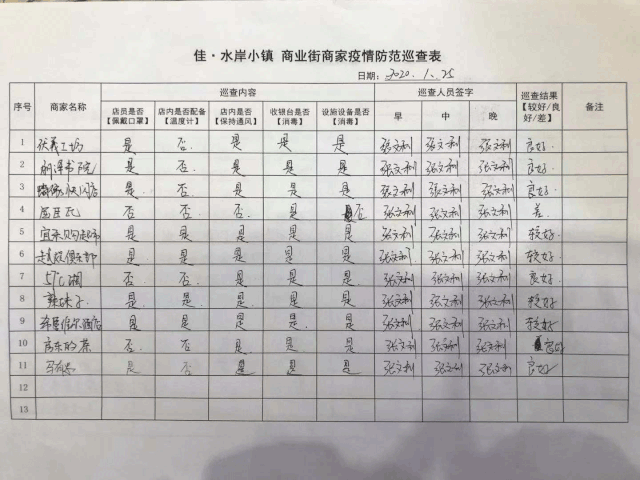 佳·水岸小镇 商业街商家疫情防范巡查表
日期: 2020.1.25
序号 商家名称 巡查内容 巡查人员签字 巡查结果【较好/良好/差】 备注
店员是否【佩戴口罩】 店内是否配备【温度计】 店内是否【保持通风】 收银台是否【消毒】 设施设备是否【消毒】 早 中 晚
1 伏羲工坊 是 否 是 是 是 张文利 张文利 张文利 良好
2 书院 是 否 是 是 是 张文利 张文利 张文利 良好
3 是 否 是 是 是 张文利 张文利 张文利 良好
4 否 否 否 是 否 张文利 张文利 张文利 差
5 宜家 是 是 是 是 是 张文利 张文利 张文利 较好
6 俱乐部 是 是 是 是 是 张文利 张文利 张文利 较好
7 否 否 是 是 是 张文利 张文利 张文利 良好
8 是 是 是 是 是 张文利 张文利 张文利 较好
9 希曼维尔酒店 是 是 是 是 是 张文利 张文利 张文利 较好
10 房东的茶 否 否 是 是 是 张文利 张文利 张文利 良好
11 是 否 是 是 是 张文利 张文利 张文利 良好
12
13